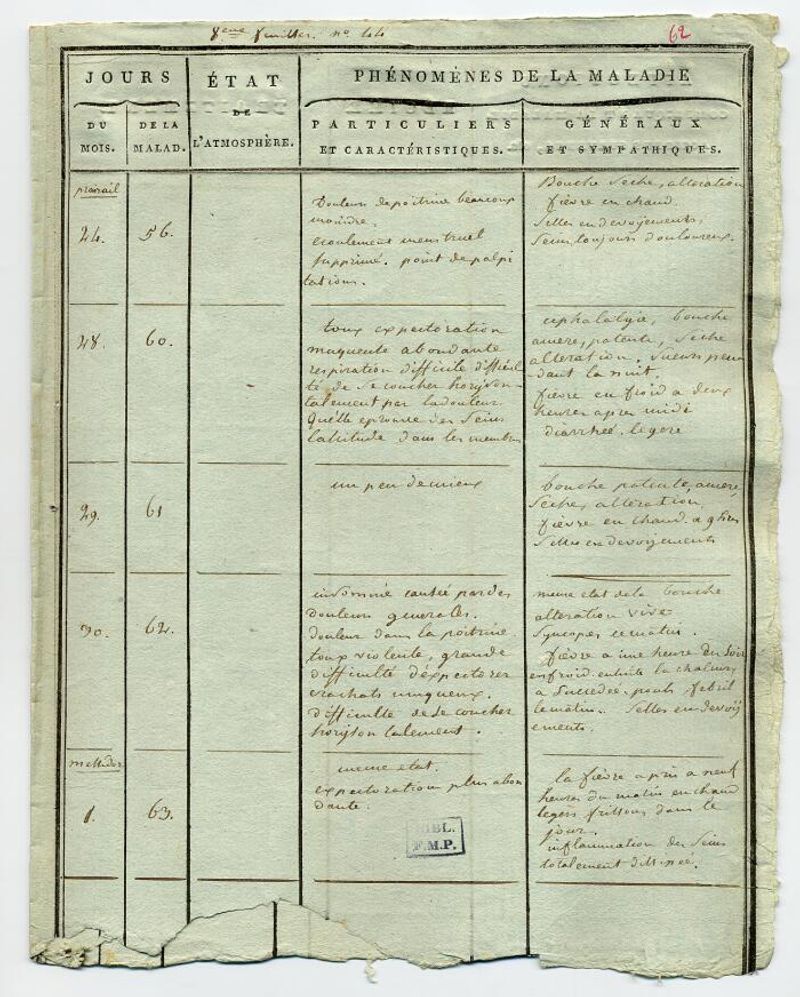 8eme feuillet. no 44
62
JOURS
ÉTAT
PHÉNOMÈNES DE LA MALADIE
DU
MOIS.
DE LA
MALAD.
DE
L'ATMOSPHÈRE.
PARTICULIERS
ET CARACTÉRISTIQUES.
GÉNÉRAUX
ET SYMPATHIQUES.
prairial
24.
56.
Douleurs de poitrine beaucoup
moindre.
ecoulement menstruel
supprimé. point de palpi
tations.
Bouche seche, alteration
fièvre en chaud.
selles en devoyements,
seins toujours douloureux.
28.
60.
toux expectoration
muqueuse abondante
respiration difficile difficul
té de se coucher horizon-
talement par la douleur.
qu'elle eprouve des seins
lassitude dans les membres
cephalalgie, bouche
amere, pateuse, seche
alteration. sueurs pen
dant la nuit.
fièvre en froid a deux
heures apres midi
diarrhée legere
29.
61
un peu de mieux
bouche pateuse, amere,
seche, alteration,
fièvre en chaud a 9 heures
selles en devoyements
30.
62.
insomnie causée par des
douleurs generales.
douleur dans la poitrine.
toux violente, grande
difficulté d'expectorer
crachats muqueux.
difficulté de se coucher
horizontalement.
meme etat de la bouche
alteration vive
syncopes ce matin.
fièvre a une heure du soir
en froid. ensuite la chaleur
a succedée. pouls febril
le matin. selles en devoy
ements.
messidor
1.
63.
meme etat.
expectoration plus abon
dante.
la fièvre a pris a neuf
heures du matin en chaud
legers frissons dans le
jour.
inflammation des seins
totalement dissipée.
BIBL.
F.M.P.